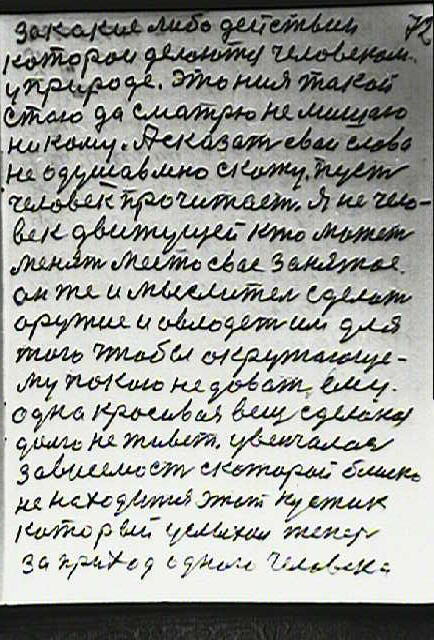 за какие либо действии 72
которои делоются человеком
у природе. Это ния такой
стаю да сматрю не мишаю
никому. А сказат свои слова
не одушавлно скожу, пуст
человек прочитает. Я не чело-
век движущей кто может
менят место свае занятое.
он же и мыслител сделат
оружие и овлодет им для
того чтобы окружающе-
му покою не доват ему.
одна красивая вещ сделоная
долго не живет, увенчалая
зависемост с которой блиско
не находится этот кустик
который услыхал тепер
за приход одного человека